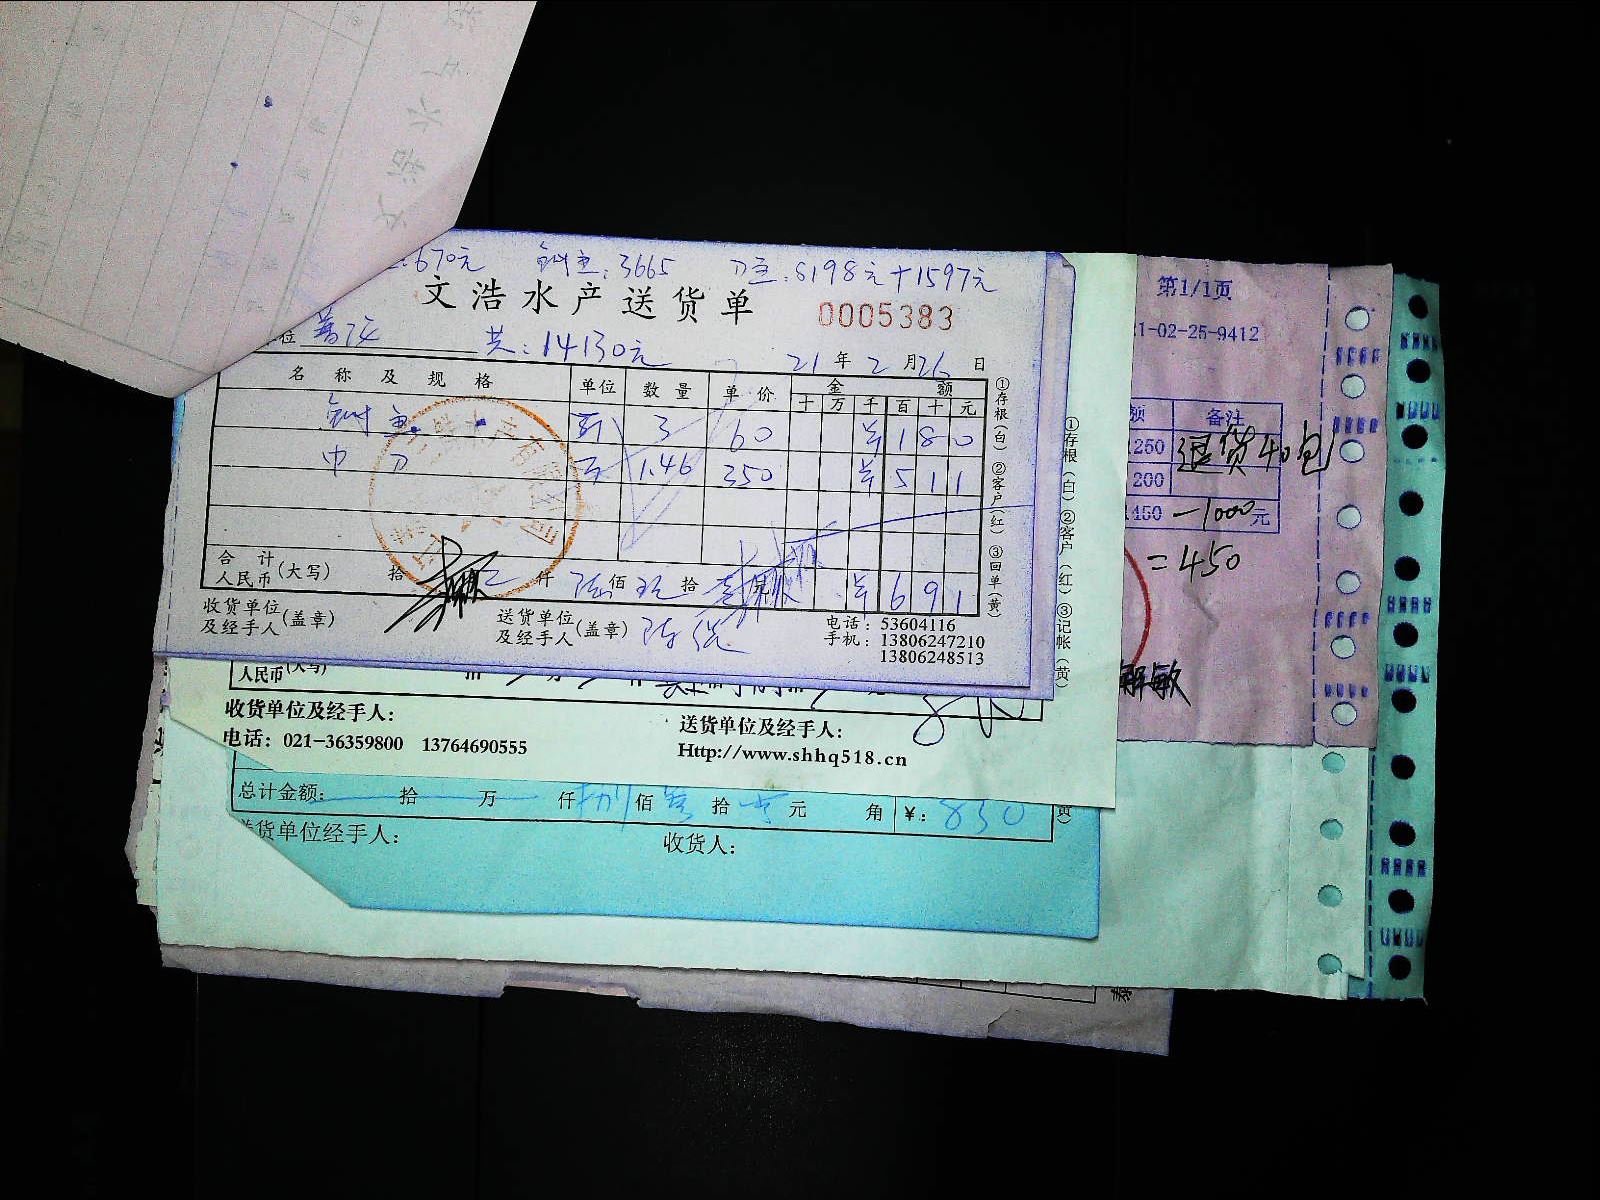 670元 鲥鱼:3665 刀鱼:8198元+1597元
文浩水产送货单 0005383
位 共:14130元
21年2月26日
名称及规格 单位 数量 单价 金额
十 万 千 百 十 元
鲥鱼 斤 3 60 ¥ 1 8 0
中刀 斤 1.46 350 ¥ 5 1 1
合计
人民币(大写) 拾 仟 陆佰 玖拾 元 ¥ 6 9 1
收货单位
及经手人(盖章)
送货单位
及经手人(盖章)
电话:53604116
手机:13806247210
13806248513
①存根(白) ②客户(红) ③回单(黄)
①存根(白) ②客户(红) ③记帐(黄)
人民币(大写)
收货单位及经手人:
送货单位及经手人:
电话: 021-36359800 13764690555
Http://www.shhq518.cn
总计金额: 拾 万 仟 捌佰 叁拾 元 角 ¥: 830
送货单位经手人:
收货人:
第1/1页
1-02-25-9412
额 备注
1250 退货40包
200
1450 -1000元
=450
解敏